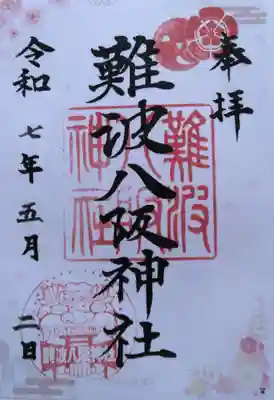 奉拝
難波八阪神社
令和七年五月二日
難波八阪神社